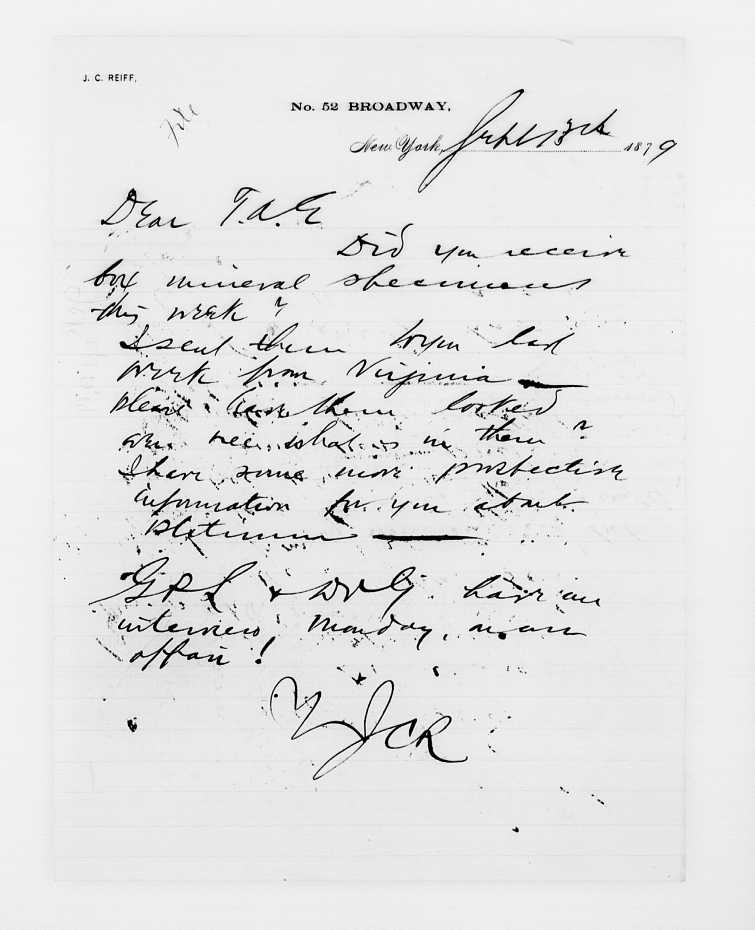 J. C. REIFF,
No. 52 BROADWAY,
File
New York, Sept 13th 1879
Dear T.A.E
Did you receive
box mineral specimens
this week?
I sent them to you last
week from Virginia —
please have them looked
over see what is in them?
I have some more prospective
information for you about
Platinum —
GPL & DVG have an
interview Monday, on
affair!
Y JCR